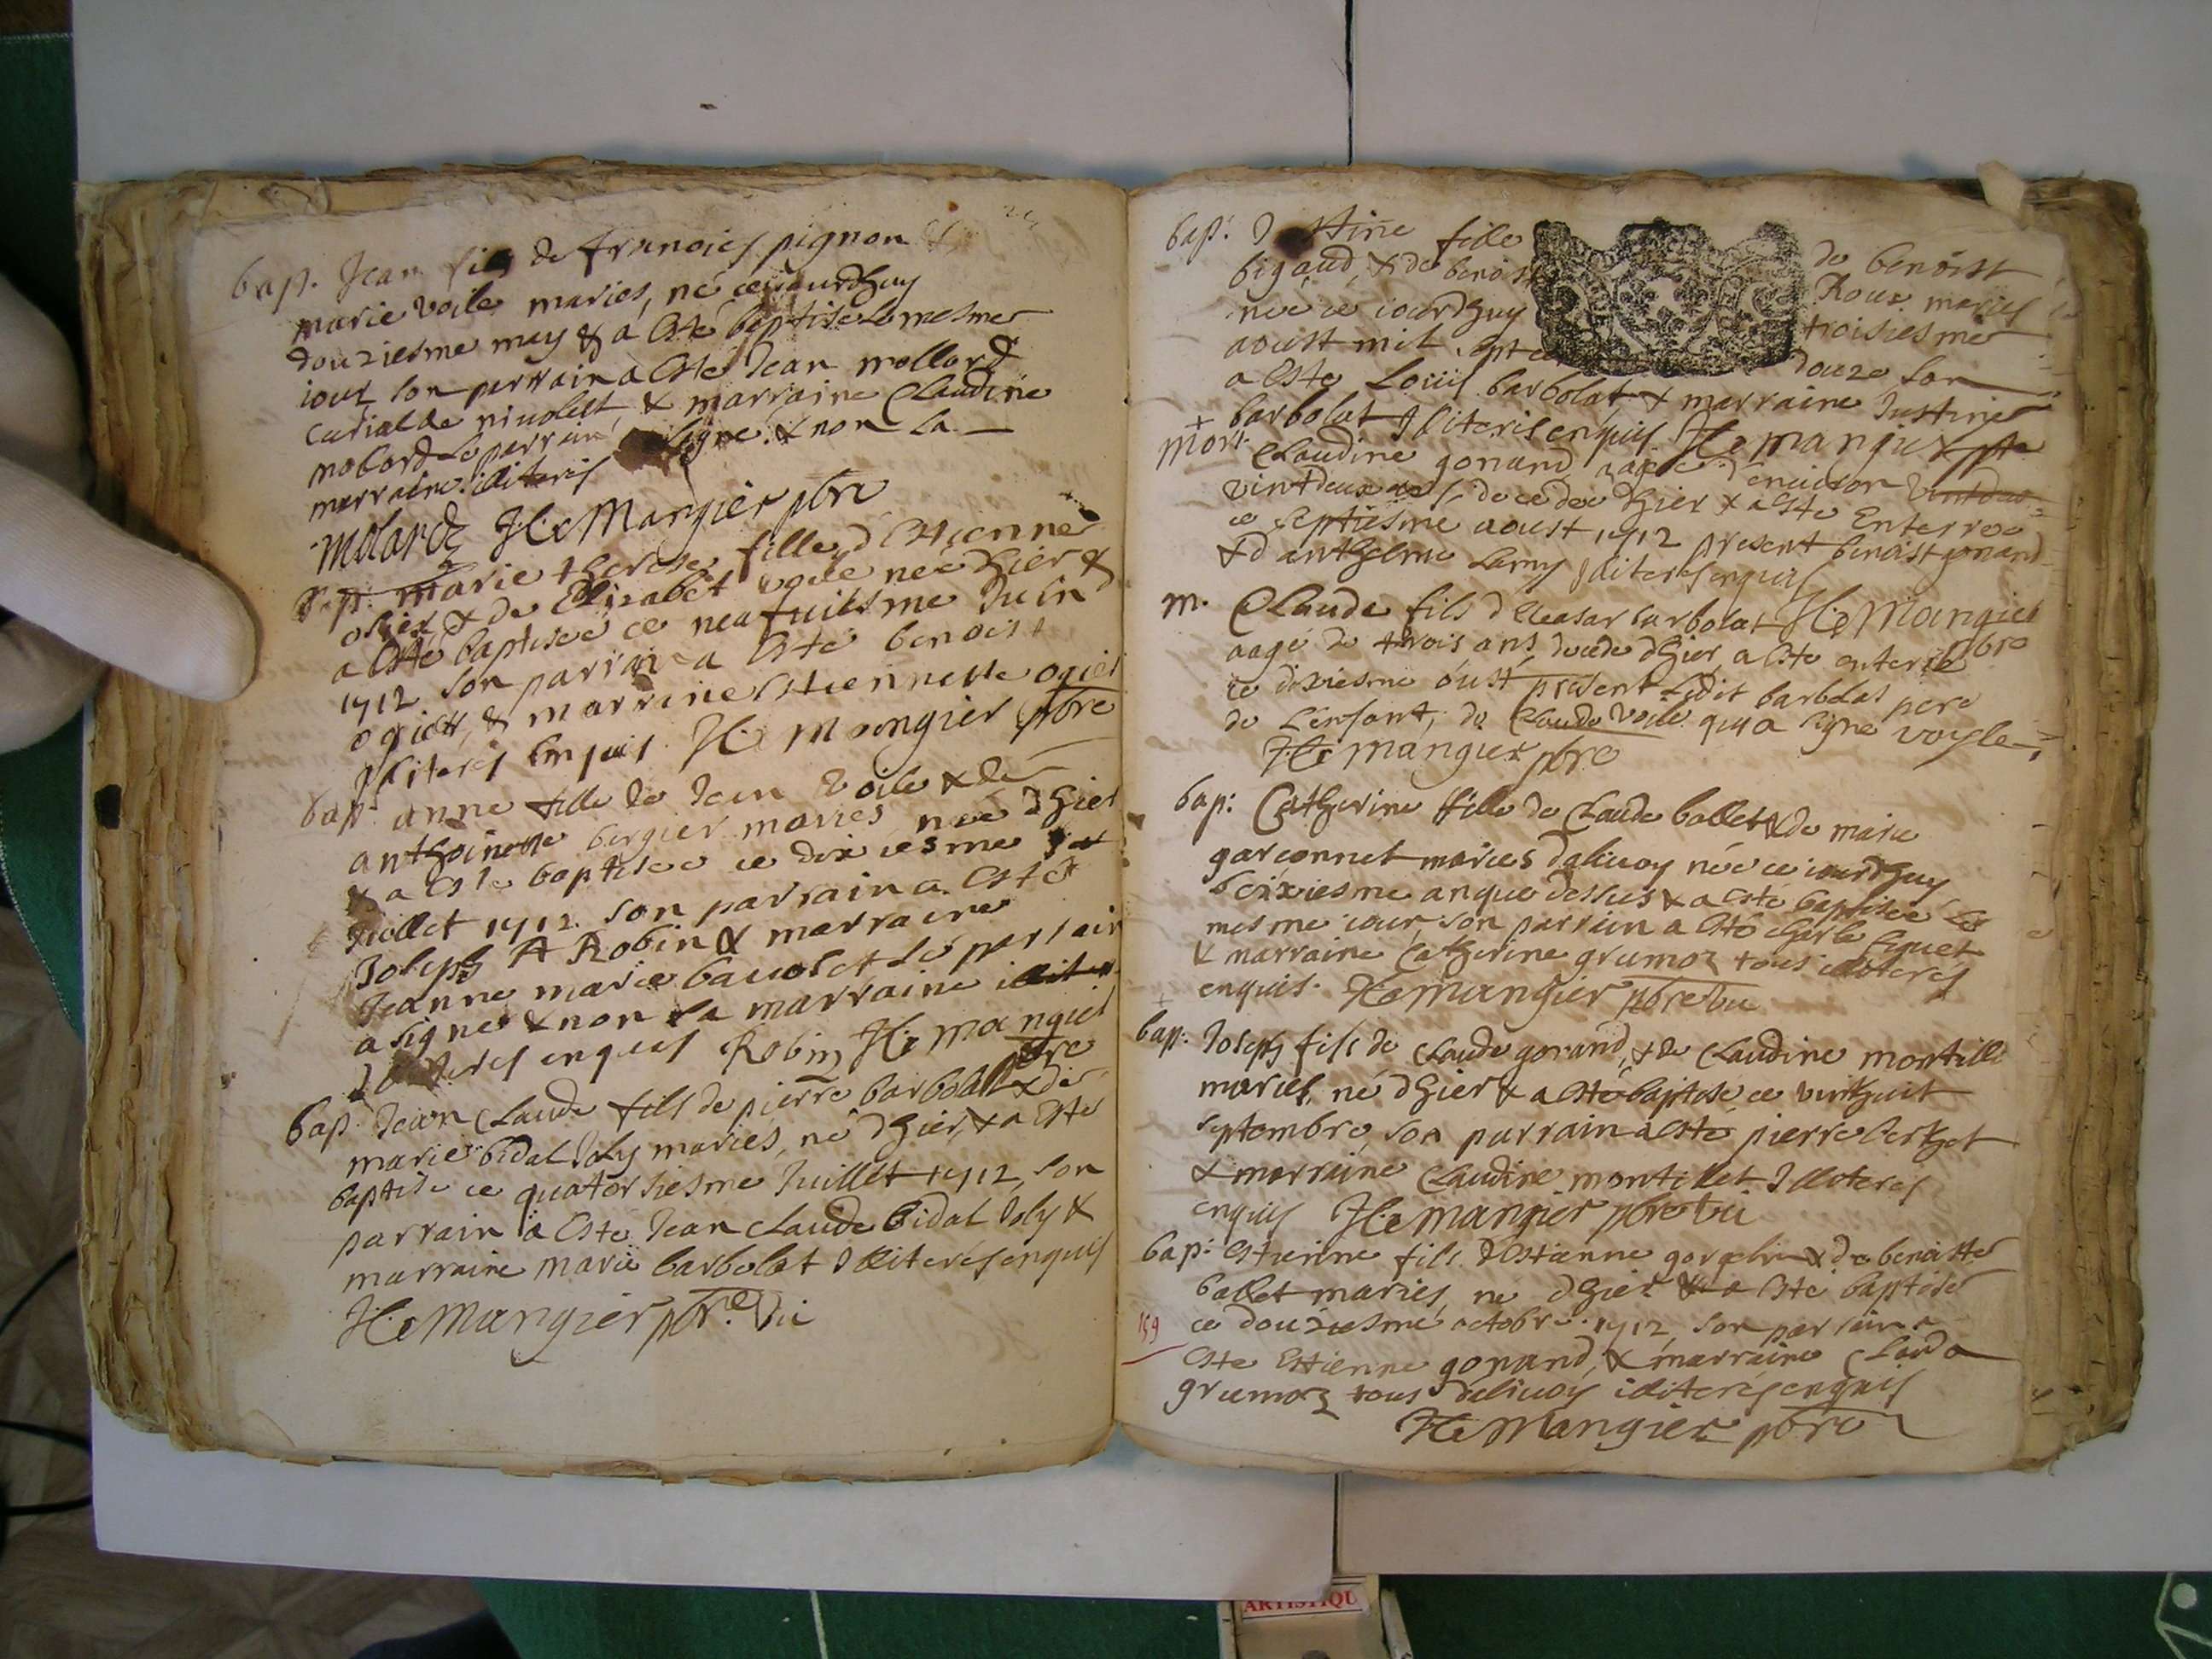 bap. Jean fils de francois pignon &
marie voile mariés, né ceiourdhuy
douziesme may & a esté baptisé le mesme
iour son parrain a esté Jean mollard
curial de nivolest & marraine Claudine
molard le parrain signe & non la
marraine illiterés
Molard H. Mangier pbre
bap. marie therese fille d'estienne
ogier & de Elizabet voile née hier &
a esté baptisée ce neufuiesme Juin
1712 son parrain a esté benoist
ogier, & marrine estiennette ogier
illiterés enquis H. Mangier pbre
bap. anne fille de Jean voile & de
anthoinette bergier mariés née dhier
& a esté baptisée ce dixiesme
Juillet 1712. son parrain a esté
Joseph Robin & marraine
Jeanne marie le parrain
a signé & non la marraine
enquis Robin H. Mangier
pbre
bap. Jean Claude fils de pierre barbolat & de
marie bidal Joly mariés, né dhier, & a esté
baptisé ce quatorsiesme Juillet 1712, son
parrain a esté Jean Claude bidal Joly &
marraine marie barbolat Illiterés enquis
H. Mangier pbre. vic
bap. fille de benoist
bigaud, & de benoist Roux mariés
née ce iourdhuy troisiesme
aoust mil sept douze son
a esté Louis barbolat & marraine Justine
barbolat Illiteris enquis H. Mangier pbre
+
Mort Claudine gonand aagée d'enuiron
vintdeux ans, decedee dhier & a esté Enterree
ce septiesme aoust 1712 present benoist gonand
& d'anthelme Lamy Illiterés enquis
m. Claude fils d'Eleasar barbolat H. Mangier
pbre
aagé de trois ans, decedé dhier, a esté enterré
ce dixiesme oust present Ledit barbolat pere
de L'enfant, de Claude voile qui a signé voysle
H. Mangier pbre
bap: Catherine fille de Claude ballet & de marie
garconnet mariés née ce iourdhuy
anque dessus & a esté baptisée Le
mesme iour, son parrin a esté charle
& marraine Catherine grumoz tous illiterés
enquis. H. Mangier pbre vic
bap: Joseph fils de Claude gonand, & de Claudine montille
mariés, né dhier & a esté baptisé ce vinthuit
septembre, son parrain a esté pierre berthet
& marraine Claudine montillet Illiterés
enquis H. Mangier pbre vic
bap: Estienne fils d'Estienne & de benoitte
ballet mariés, né dhier & a esté baptisé
159 ce douziesme octobre. 1712, son parrain a
esté Estienne gonand, & marraine Clauda
grumoz tous illiterés enquis
H. Mangier pbre
ARTISTIQU